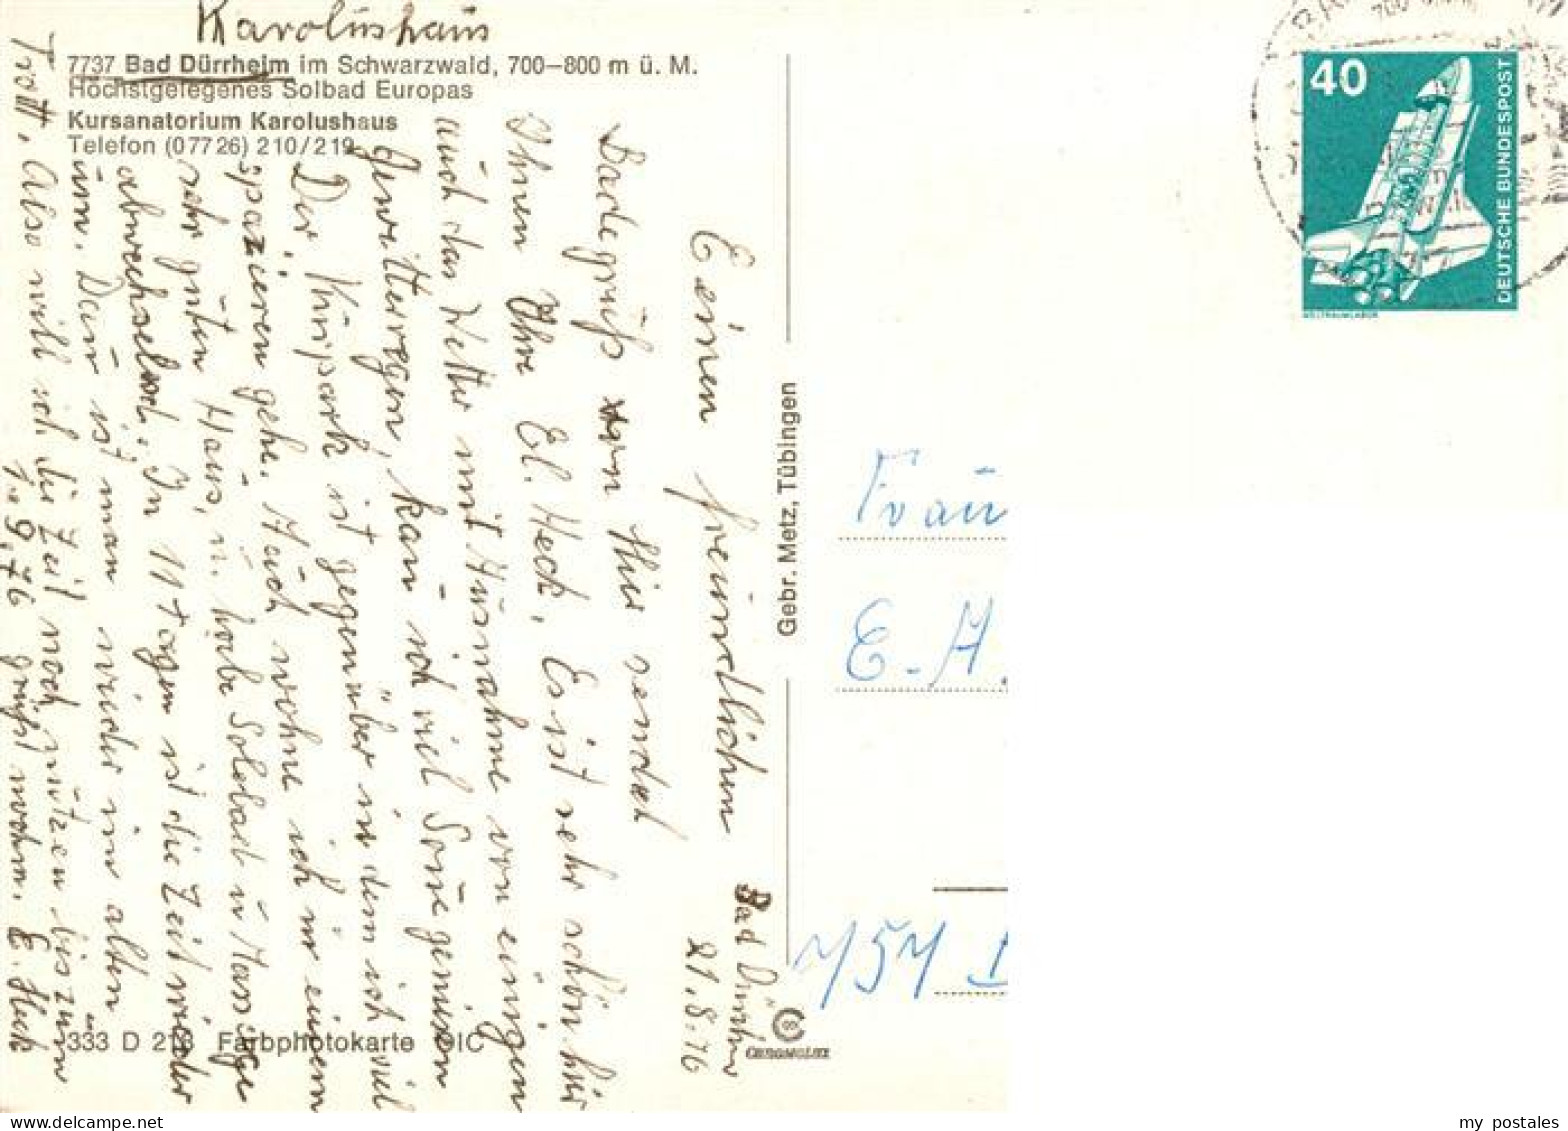 Karolushaus
7737 Bad Dürrheim im Schwarzwald, 700–800 m ü. M.
Höchstgelegenes Solbad Europas
Kursanatorium Karolushaus
Telefon (07726) 210/219
Bad Dürrheim
21.8.76
Einen freundlichen
Badegruß von hier sendet
Ihnen Ihre El. Heck. Es ist sehr schön hier
auch das Wetter mit Ausnahme von einigen
Gewitterregen, kann ich viel Sonne geniesen
Der Kurpark ist gegenüber in dem ich viel
spazieren gehe. Auch wohne ich in einem
sehr guten Haus, u. habe Solebad u Massage
abwechselnd. In 11 Tagen ist die Zeit wieder
um. Dann ist man wieder im alten
Trott. Also will ich die Zeit noch nützen bis zum
1.9.76 grüßt nochm. E. Heck
333 D 213 Farbphotokarte
Gebr. Metz, Tübingen
CHROMOLUX
40
DEUTSCHE BUNDESPOST
WELTRAUMLABOR
Frau
E. H.
757
my postales